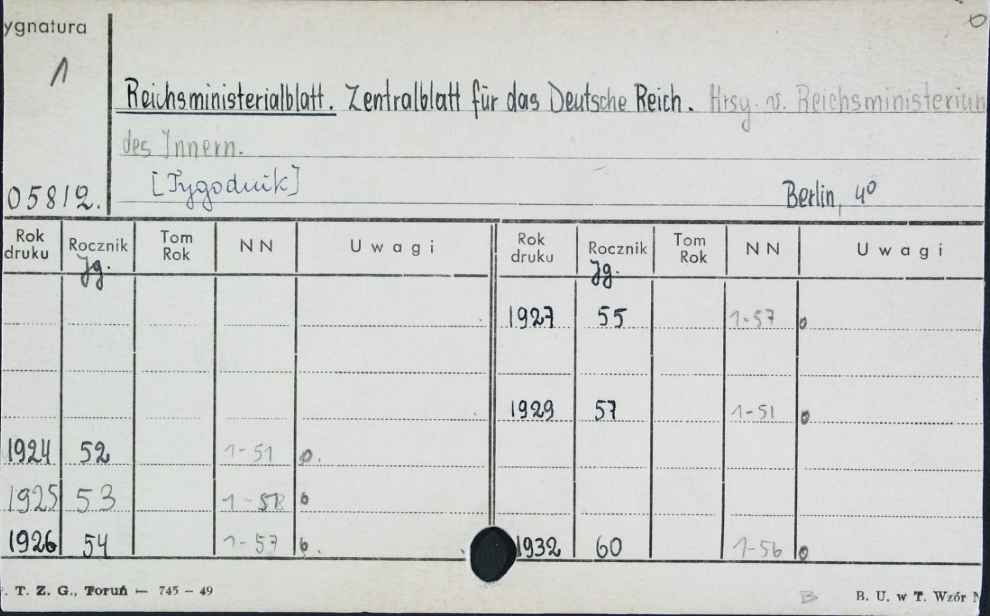 ygnatura
1
Reichsministerialblatt. Zentralblatt für das Deutsche Reich. Hrsg. v. Reichsministerium
des Innern.
[Tygodnik]
05812.
Berlin, 4º
Rok druku Rocznik Tom Rok NN Uwagi Rok druku Rocznik Tom Rok NN Uwagi
Jg. Jg.
1927 55 1-57 o
1929 57 1-51 o
1924 52 1-51 o.
1925 53 o
1926 54 1-57 1932 60 1-56 o
. T. Z. G., Toruń — 745 – 49
B. U. w T. Wzór